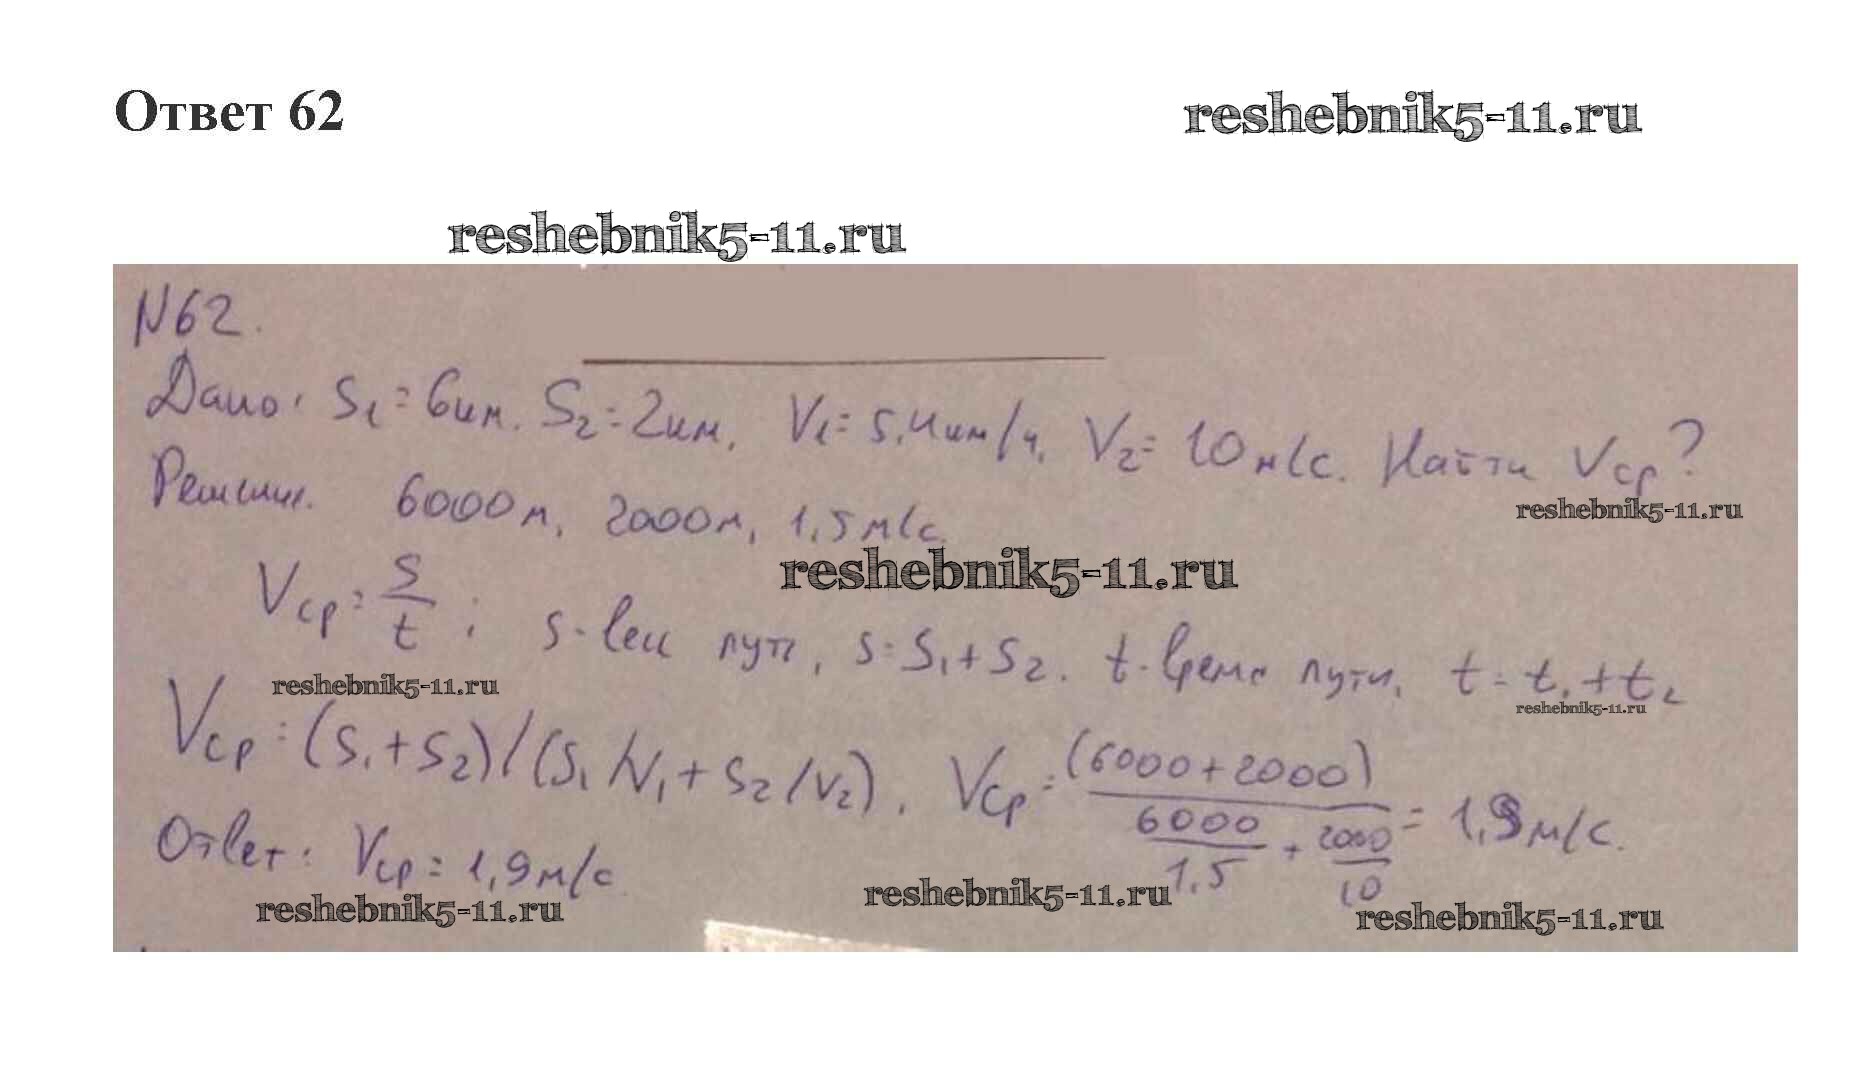 Ответ 62 reshebnik5-11.ru
reshebnik5-11.ru
N62.
Дано: S₁ = 6км. S₂ = 2км. V₁ = 5,4км/ч. V₂ = 10м/с. Найти Vср?
reshebnik5-11.ru
Решение. 6000м, 2000м, 1,5м/с.
reshebnik5-11.ru
Vср = S/t; S - весь путь, S = S₁ + S₂. t - время пути, t = t₁ + t₂
reshebnik5-11.ru reshebnik5-11.ru
Vср = (S₁ + S₂)/(S₁/V₁ + S₂/V₂). Vср = (6000 + 2000)/(6000/1.5 + 2000/10) = 1,9м/с.
Ответ: Vср = 1,9м/с
reshebnik5-11.ru reshebnik5-11.ru reshebnik5-11.ru